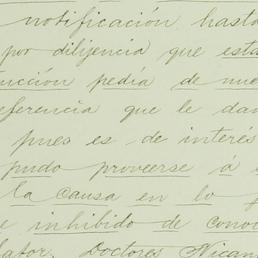 notificación hasta
por diligencia que esta
ucción pedía de nue
eferencia que le da
pues es de interés
pudo proveerse á
la causa en lo
e inhibido de cono
Doctores Nican